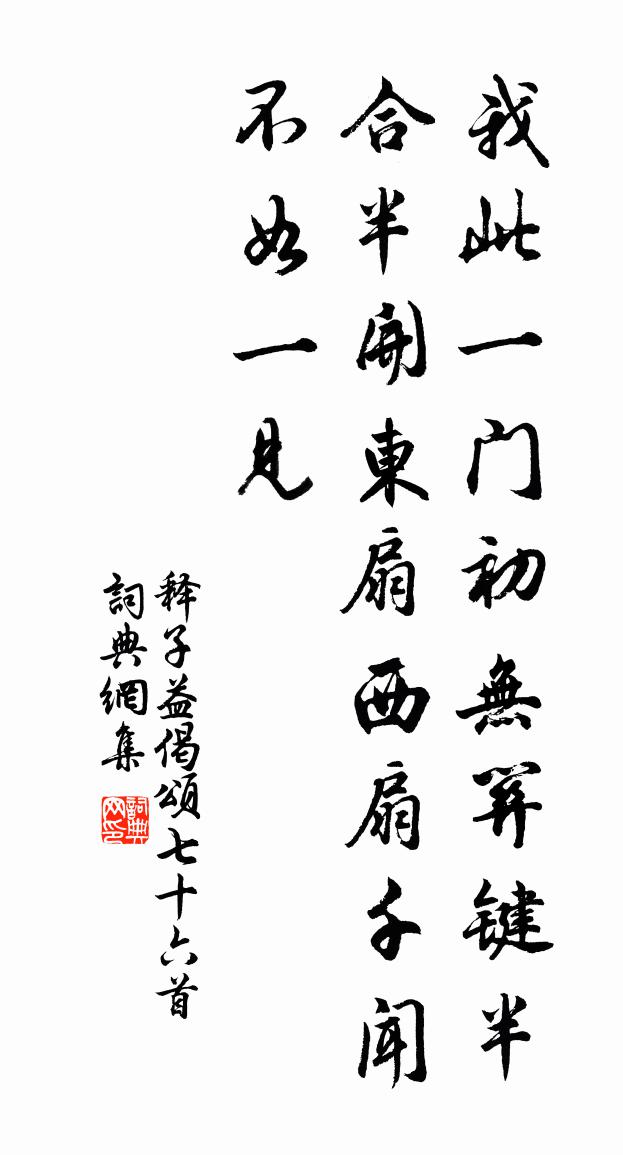 我此一门初無関键半
合半開東扇西扇千聞
不如一見
释子益偈頌七十六首
詞典網集
詞典
网印